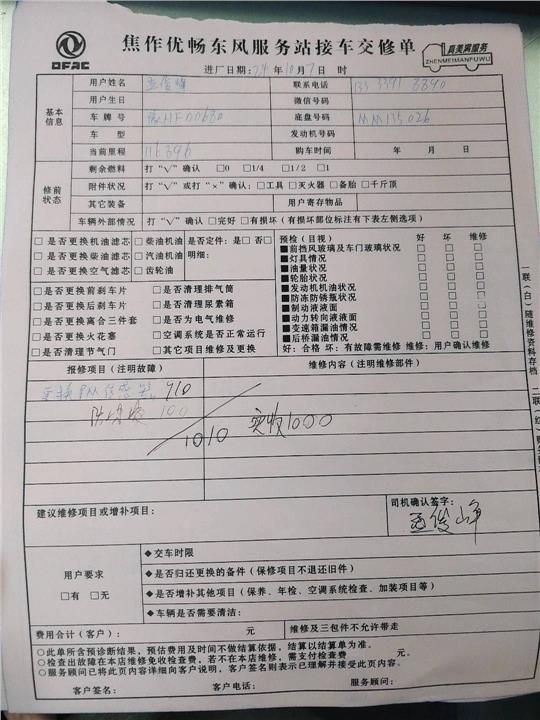 DFAC
焦作优畅东风服务站接车交修单
真美满服务
ZHENMEIMANFUWU
进厂日期：24年10月7日 时
基本信息
用户姓名 联系电话
用户生日 微信号码
车牌号 HF00680 底盘号码 MM135026
车型 发动机号码
当前里程 116396 购车时间 年 月 日
修前状态
剩余燃料 打“√”确认 □0 □1/4 □1/2 □1
附件状况 打“√”或打“×”确认：□工具 □灭火器 □备胎 □千斤顶
其它装备 用户寄存物品
车辆外部情况 打“√”确认 □完好 □有损坏（有损坏部位标注有下表左侧选项）
□是否更换机油滤芯 □柴油机油 是否定件：是□ 否□ 预检（目视） 好 坏 维修
□是否更换柴油滤芯 □汽油机油 明细： ■前挡风玻璃及车门玻璃状况 □ □ □
□是否更换空气滤芯 □齿轮油 ■灯具情况 □ □ □
■油量状况 □ □ □
□是否更换前刹车片 □是否清理排气筒 ■轮胎状况 □ □ □
□是否更换后刹车片 □是否清理尿素箱 ■发动机机油液面 □ □ □
□是否更换离合三件套 □是否为电气维修 ■防冻防锈瓶状况 □ □ □
□是否更换火花塞 □空调系统是否正常运行 ■制动液液面 □ □ □
□是否清理节气门 □其它项目维修及更换 ■动力转向液液面 □ □ □
■变速箱漏油情况 □ □ □
■后桥漏油情况 □ □ □
好：合格 坏：有故障需维修 维修：用户确认维修
报修项目（注明故障） 维修内容（注明维修部件）
更换PM传感器 910
防冻液 100
1010 实收1000
建议维修项目或增补项目： 司机确认签字：
孟俊峰
用户要求
□有 □无
◆交车时限
◆是否归还更换的备件（保修项目不退还旧件）
◆是否增补其他项目（保养、年检、空调系统检查、加装项目等）
◆车辆是否需要清洁：
费用合计（客户）： 元 维修及三包件不允许带走
○此单所含预诊断结果，预估费用及时间不做结算依据，结算以结算单为准。
○检查出故障在本店维修免收检查费，若不在本店维修，需支付检查费 元。
○服务顾问已将此页内容详细向客户说明，客户签名则表示已理解并接受此页内容。
客户签名： 客户电话： 服务顾问：
一联（白）随维修资料存档
二联（红）